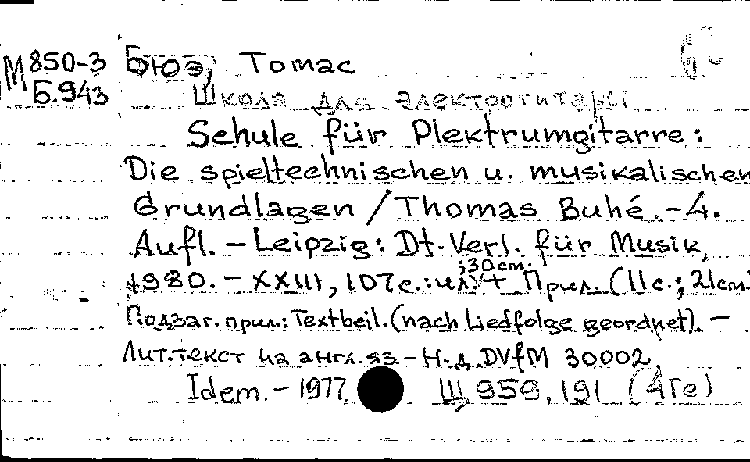 М 850-3 Бюэ, Томас
Б.943 Школа для электрогитары
Schule für Plektrumgitarre:
Die spieltechnischen u. musikalischen
Grundlagen / Thomas Buhé. - 4.
Aufl. - Leipzig: Dt. Verl. für Musik,
1980. - XXIII, 107 с.: ил.; 30 cm. + Прил. (11 с.; 21 cm)
Подзаг. прил.: Textbeil. (nach Liedfolge geordnet). -
Лит. текст на англ. яз - Н. д. DVfM 30002
Idem. - 1977 Щ 959.191